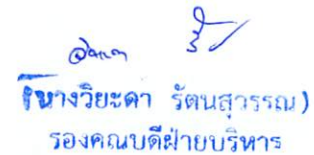 (นางวิยะดา รัตนสุวรรณ)
รองคณบดีฝ่ายบริหาร